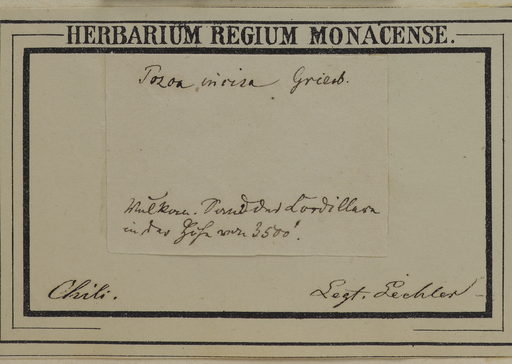 HERBARIUM REGIUM MONACENSE.
Pozoa incisa Griseb.
Vulkan. Sand der Cordillera
in der Höhe von 3500'.
Chili.
Legt. Lechler